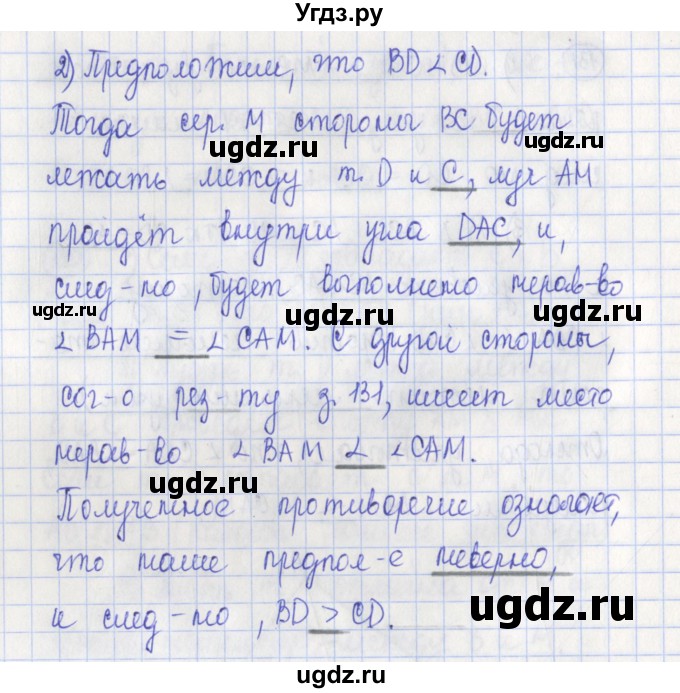 Угдз.ру
2) Предположим, что BD < CD.
Тогда сер. M стороны BC будет
ugdz.ru ugdz.ru
лежать между т. D и C, луч AM
пройдёт внутри угла DAC, и,
ugdz.ru
след-но, будет выполнено нерав-во
ugdz.ru ugdz.ru ugdz.ru
∠ BAM = ∠ CAM. С другой стороны,
сог-о рез-ту з. 131, имеет место
ugdz.ru
нерав-во ∠ BAM < ∠CAM.
ugdz.ru
Полученное противоречие означает,
что наше предпол-е неверно,
ugdz.ru
и след-но, BD > CD.
ugdz.ru ugdz.ru